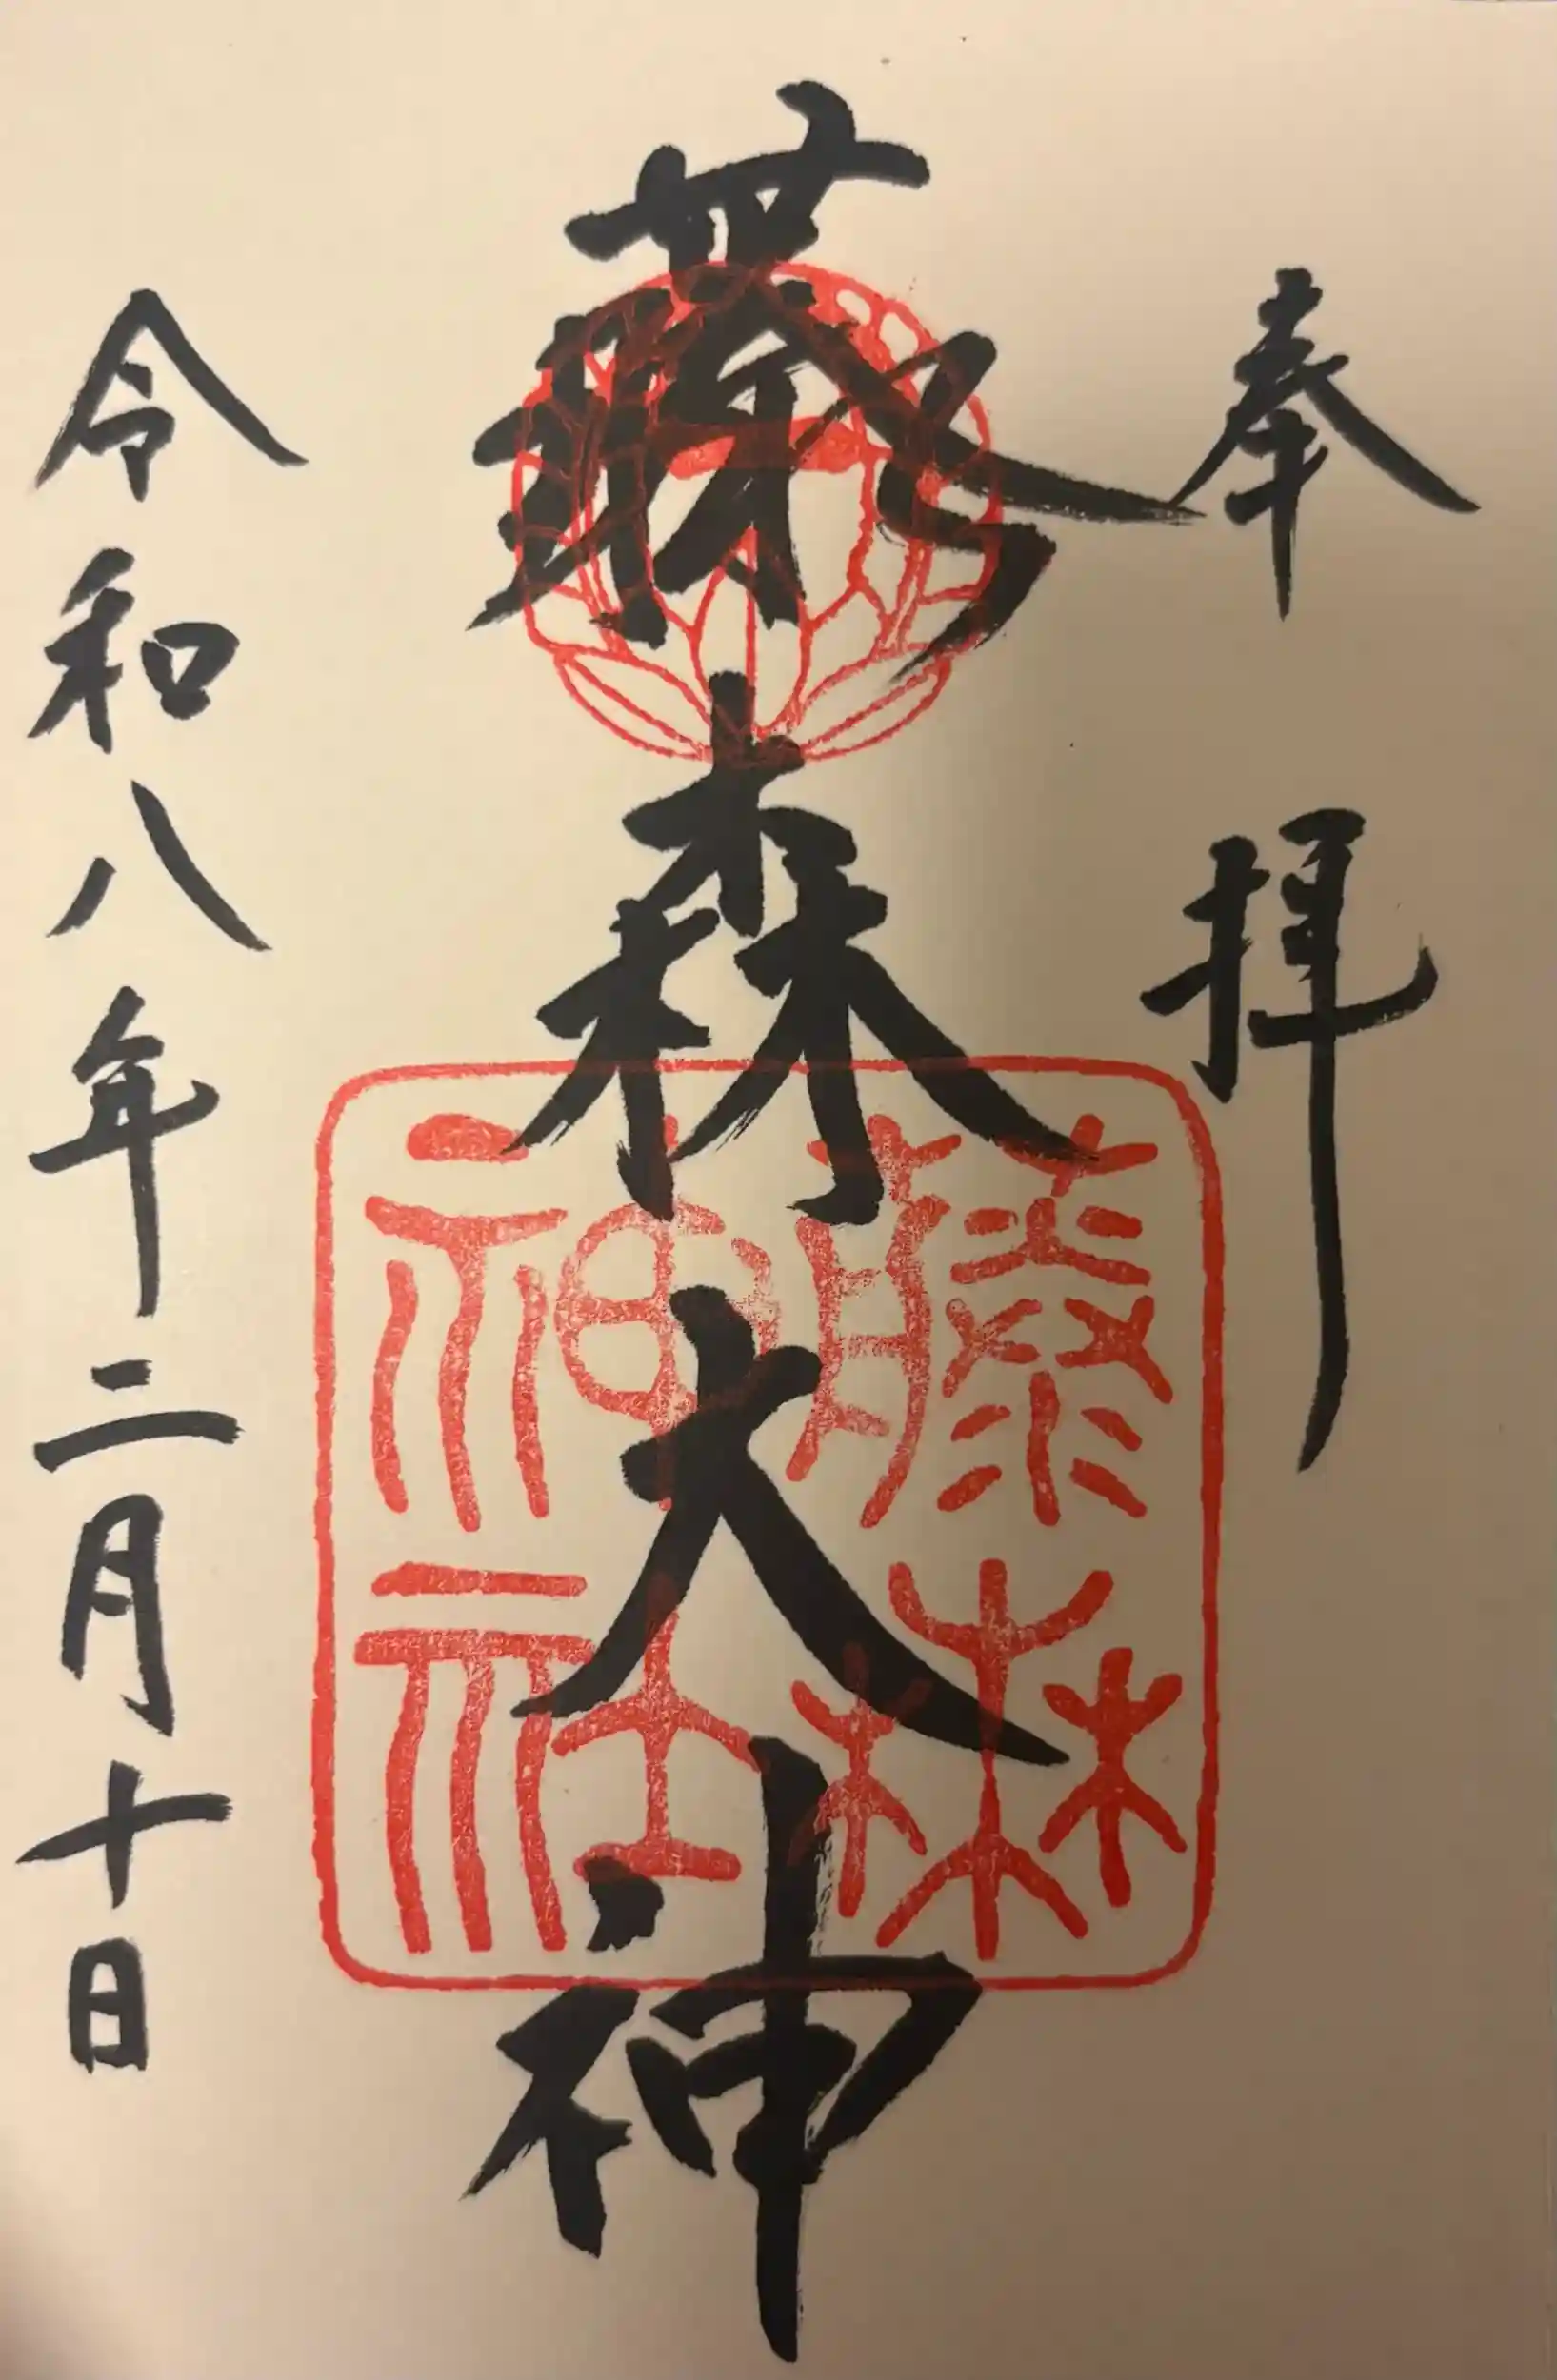 奉拝
藤森大神
藤森
神社
令和八年二月十日